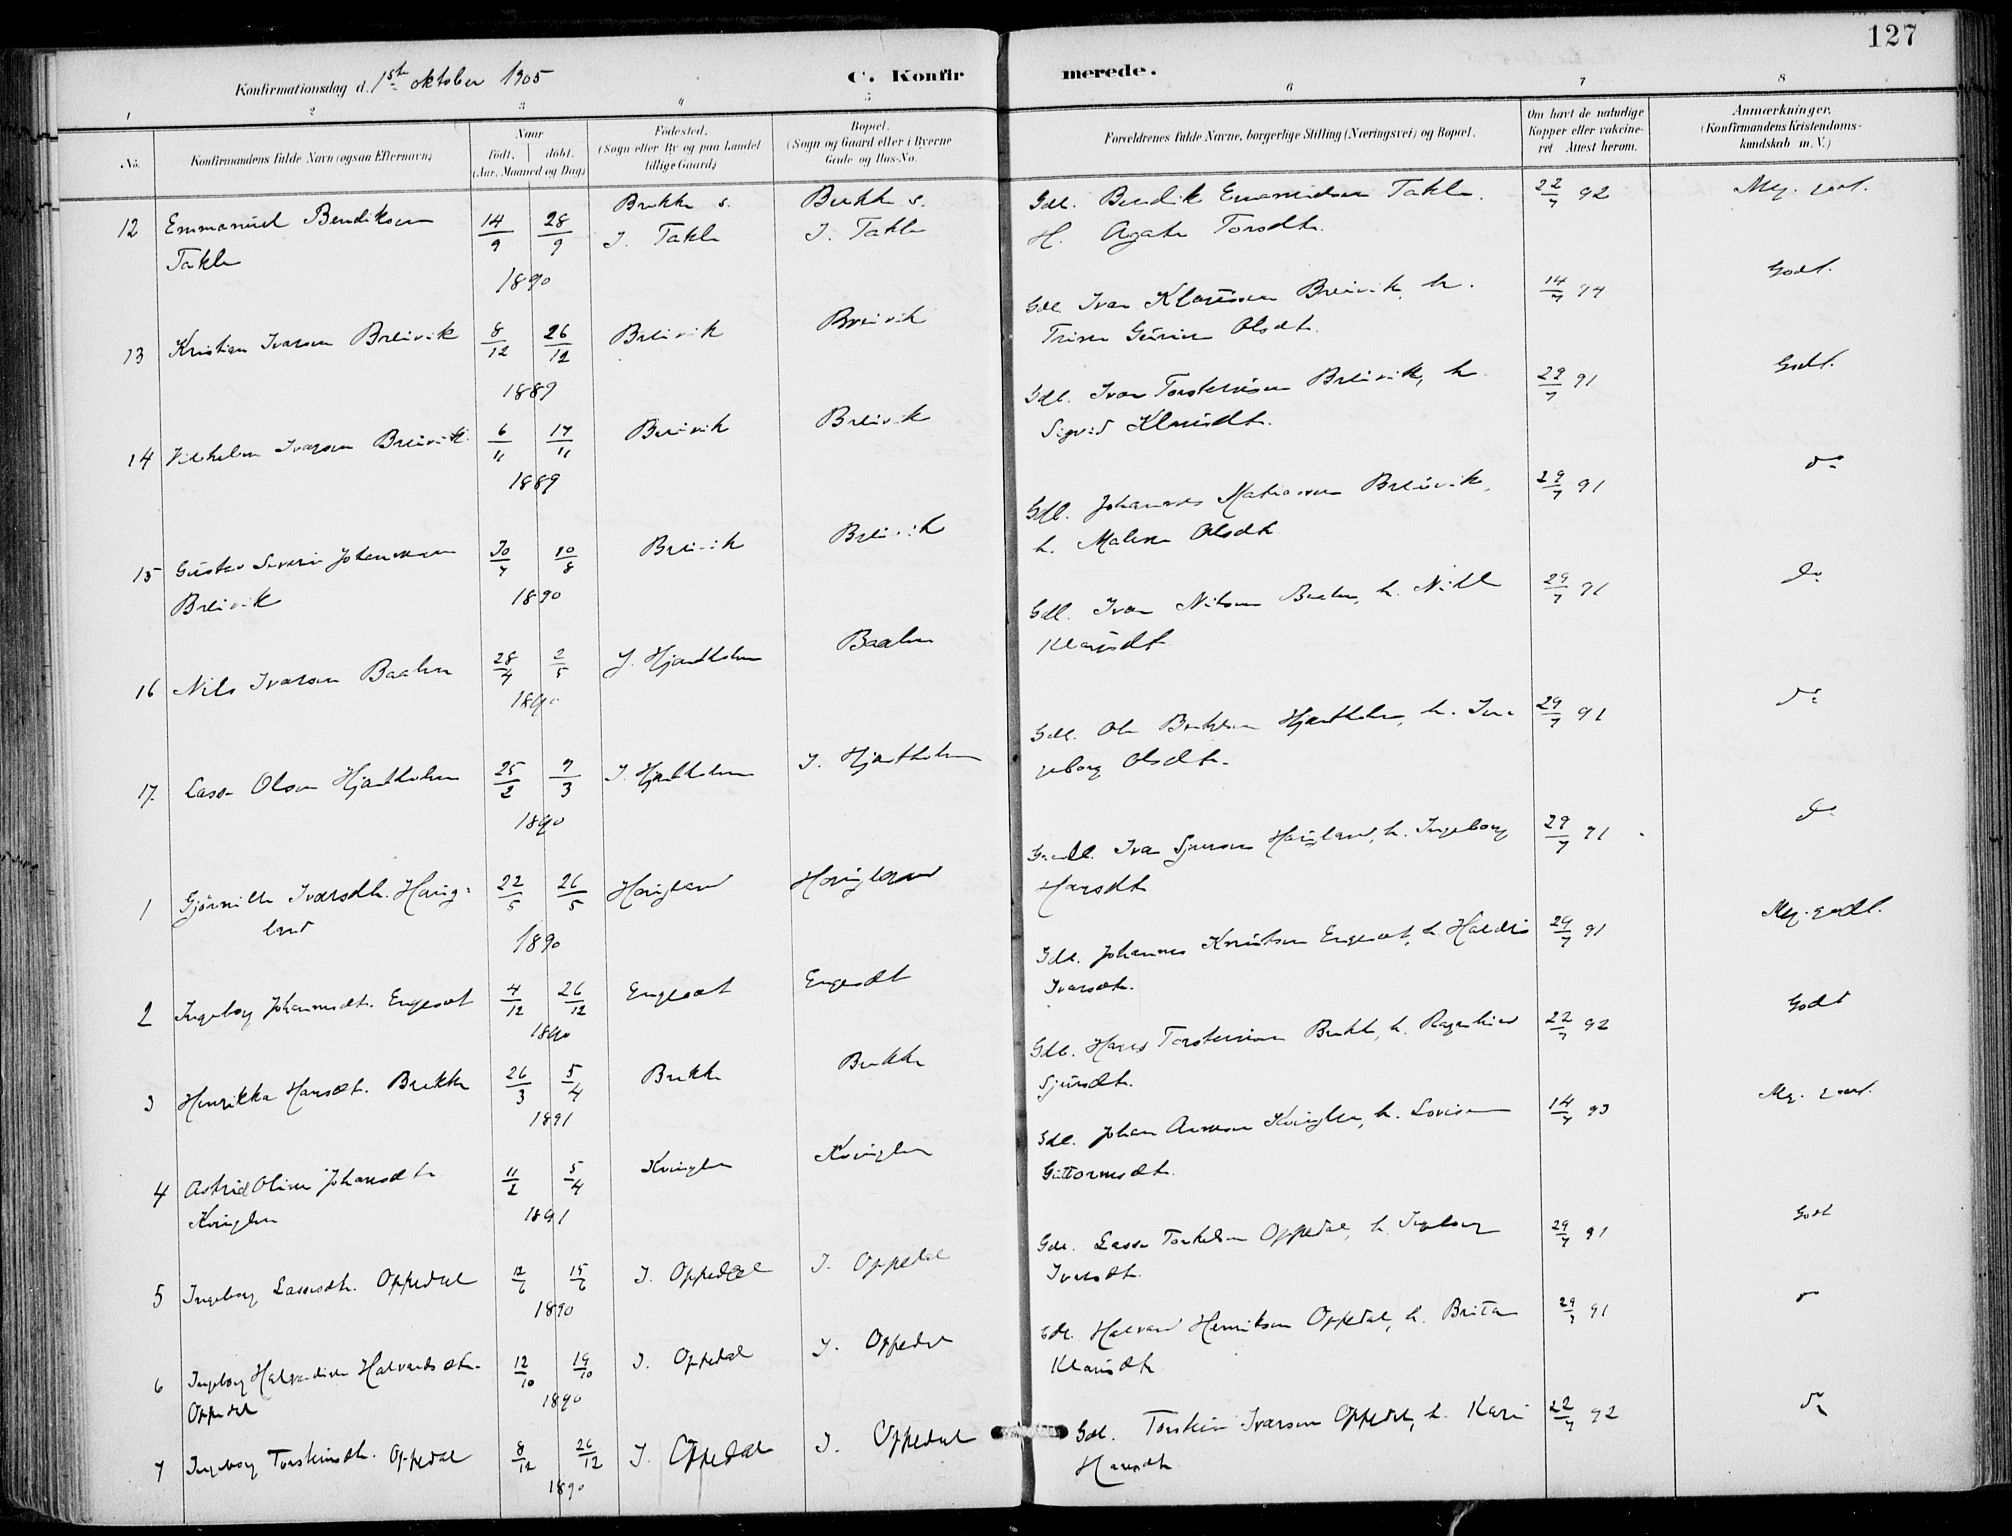 127
Konfirmationsdag d. 1ste oktober 1905
C. Konfirmerede.
1 2 3 4 5 6 7 8
No. Konfirmandens fulde Navn (ogsaa Efternavn)
Naar født. døbt. (Aar, Maaned og Dag)
Fødested. (Sogn eller By og paa Landet tillige Gaard)
Bopæl. (Sogn og Gaard eller i Byerne Gade og Hus-No.
Forældrenes fulde Navne, borgerlige Stilling (Næringsvei) og Bopæl.
Om havt de naturlige Kopper eller vaccineret Attest herom.
Anmærkninger. (Konfirmandens Kristendomskundskab m. V.)
12 Emmanuel Bendiksen 14/9 28/9 Brekke s. Brekke s. Gdl. Bendik Emanuelsen Takle. 22/7 92 Meg. godt.
Takle 1890 I. Takle I. Takle H. Agate Torsdtr.
13 Kristian Ivarsen Breivik 8/12 26/12 Breivik Breivik Gdl. Ivar Klausen Breivik, h. 14/7 94 Godt.
1889 Trine Olsdt.
14 Vilhelm Ivarsen Breivik 6/11 17/11 Breivik Breivik Gdl. Ivar Torsteinsen Breivik, h. 29/7 91 Godt.
1889 Sigrid Klausdt.
15 Gustav Severin Johannesen 30/7 10/8 Breivik Breivik Gdl. Johannes Matiassen Breivik, 29/7 91 do
Breivik 1890 h. Malene Olsdt.
16 Nils Ivarsen Baalen 28/4 2/5 I. Hjartholm Baalen Gdl. Ivar Nilsen Baalen, h. 29/7 91 do
1890 Klausdt
17. Lasse Olsen Hjartholm 25/2 9/3 I. Hjartholm I. Hjartholm Gdl. Ole Hjartholm, h. In- 29/7 91 do
1890 geborg Olsdt.
1 Gjørnille Ivarsdt. Haug- 22/5 26/5 Haugland Haugland Ivar Sjursen Haugland, h. Ingeborg 29/7 91 do
land 1890 Hansdt
2 Ingeborg Johannesdt. Engesæt 4/12 26/12 Engesæt Engesæt Gdl. Johannes Knutsen Engesæt, h. Haldis 29/7 91 Meg. godt.
1890 Ivarsdt.
3 Henrikka Hansdt. Brekke 26/3 5/4 Brekke Brekke Gdl. Hans Torsteinsen Brekke, h. Ragnhild 22/7 92 Godt
1891 Sjursdt.
4 Astrid Oline Johansdt 11/2 5/4 Kvinglen Kvinglen Gdl. Johan Kvinglen, h. Lovise 14/7 93 Meg. godt.
Kvinglen 1891 Guttormsdt.
5 Ingeborg Lassesdt. Oppedal 15/6 I. Oppedal I. Oppedal Gdl. Lasse Torkelsen Oppedal, h. Ingeborg 29/7 91 Godt
1890 Ivarsdt.
6 Ingeborg Halvardine Halvardsdt. 12/10 19/10 I. Oppedal I. Oppedal Gdl. Halvard Henriksen Oppedal, h. Brita 29/7 91 do
Oppedal 1890 Klausdt
7 Ingeborg Torsteinsdt. Oppedal 8/12 26/12 I. Oppedal I. Oppedal Gdl. Torstein Ivarsen Oppedal, h. Kari 22/7 92 do
1890 Hansdt.